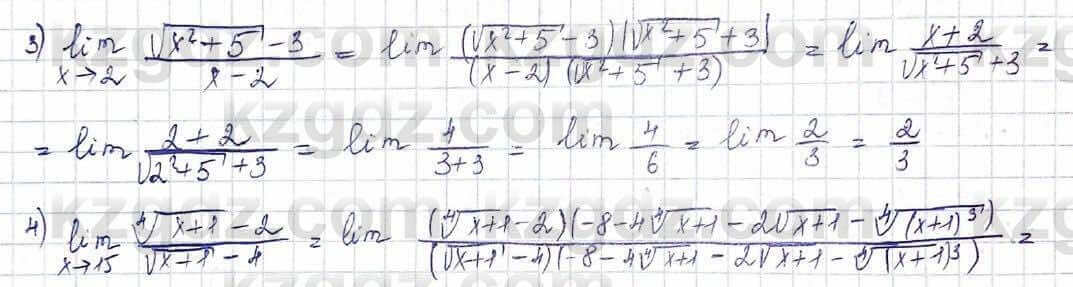 3) lim x→2 (√(x²+5) - 3)/(x - 2) = lim ((√(x²+5) - 3)(√(x²+5) + 3))/((x - 2)(√(x²+5) + 3)) = lim (x+2)/(√(x²+5) + 3) =
= lim (2+2)/(√(2²+5) + 3) = lim 4/(3+3) = lim 4/6 = lim 2/3 = 2/3
4) lim x→15 (⁴√(x+1) - 2)/(√(x+1) - 4) = lim ((⁴√(x+1) - 2)(-8 - 4⁴√(x+1) - 2√(x+1) - ⁴√((x+1)³)))/((√(x+1) - 4)(-8 - 4⁴√(x+1) - 2√(x+1) - ⁴√((x+1)³))) =
kzgdz.com